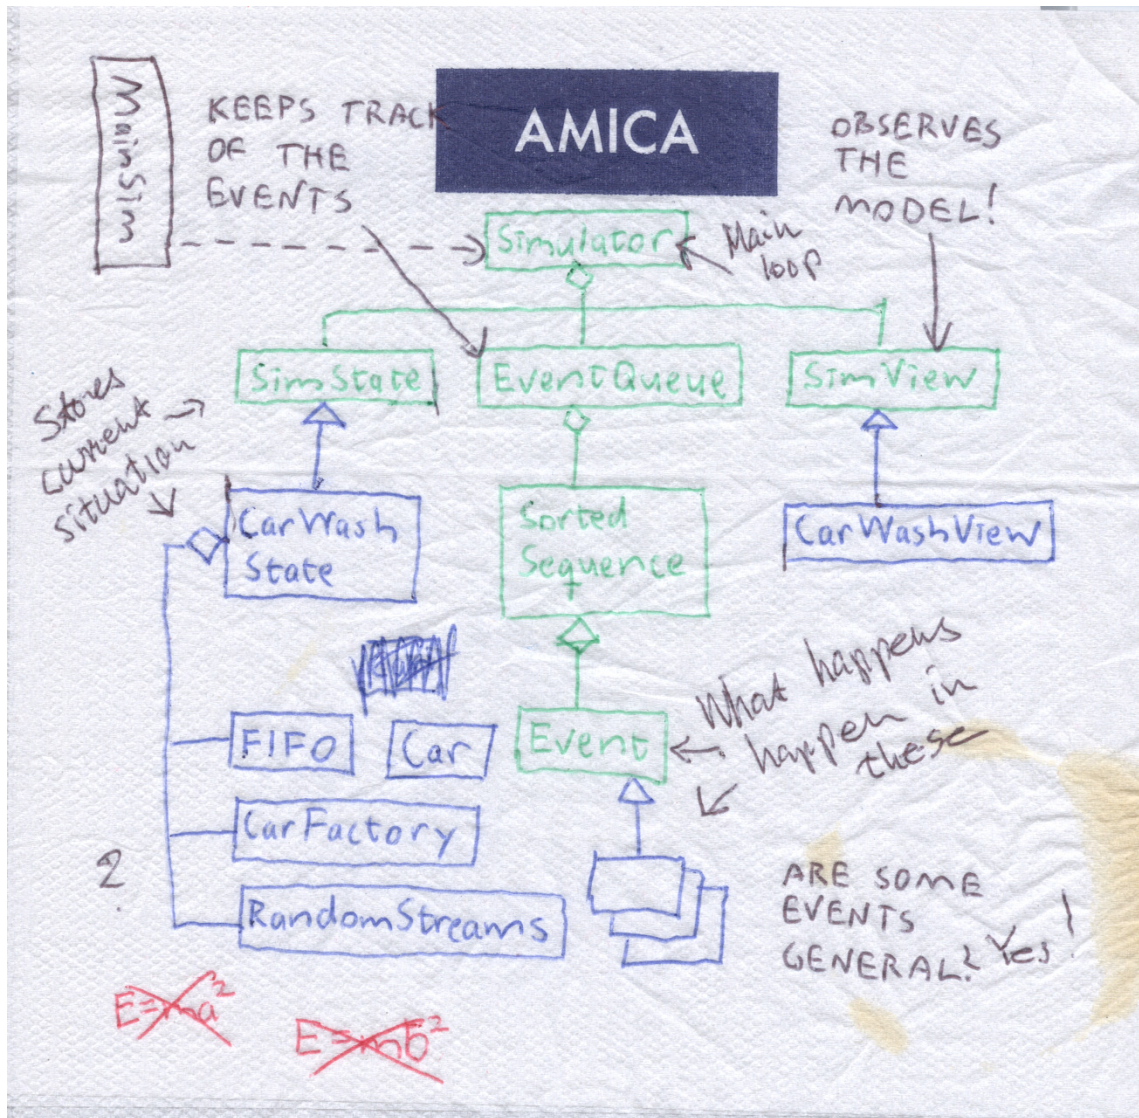 MainSim
KEEPS TRACK
OF THE
EVENTS
AMICA
OBSERVES
THE
MODEL!
Simulator
Main
loop
SimState
EventQueue
SimView
Stores
current
situation
CarWash
State
Sorted
Sequence
CarWashView
What happens
happen in
these
FIFO
Car
Event
CarFactory
2
RandomStreams
ARE SOME
EVENTS
GENERAL? Yes!
E=ma²
E=mb²